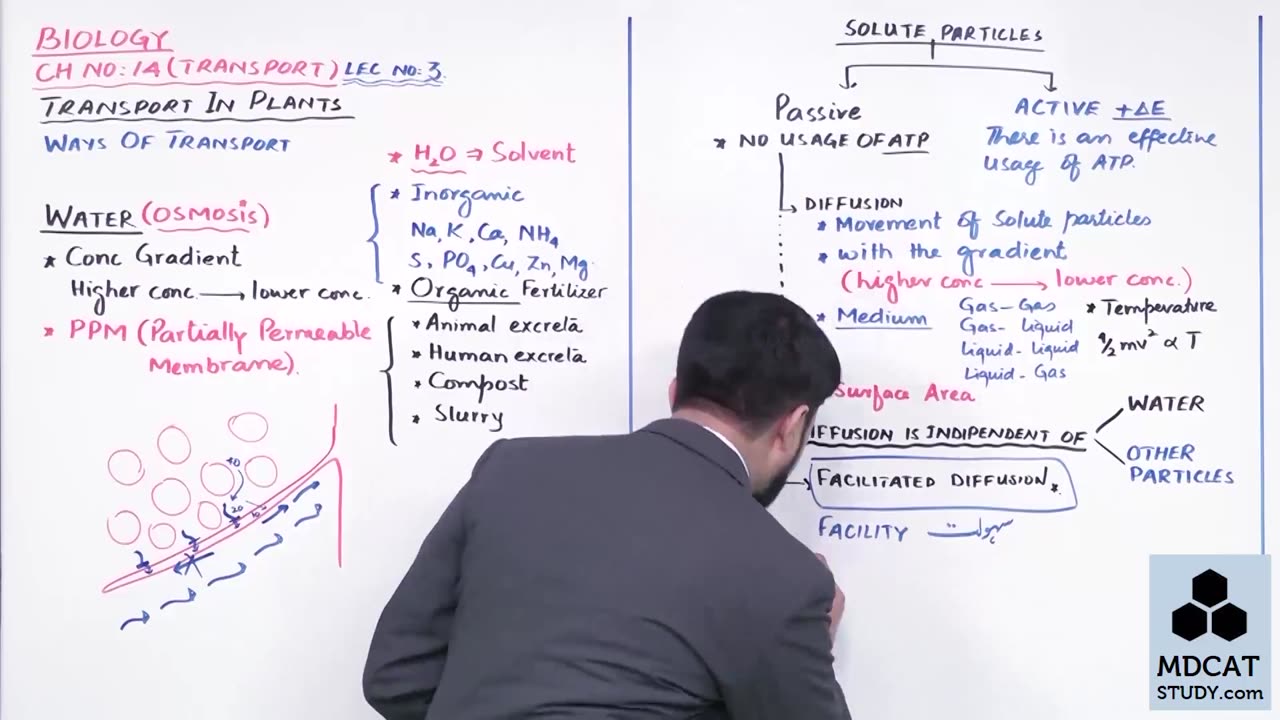 BIOLOGY
CH NO: 14 (TRANSPORT) LEC NO: 3.
TRANSPORT IN PLANTS
WAYS OF TRANSPORT
WATER (OSMOSIS)
* Conc Gradient
Higher conc. → lower conc.
* PPM (Partially Permeable
Membrane).
40
20
* H₂O ⇒ Solvent
* Inorganic
Na, K, Ca, NH₄
S, PO₄, Cu, Zn, Mg.
* Organic Fertilizer
* Animal excreta
* Human excreta
* Compost
* Slurry
SOLUTE PARTICLES
Passive
* NO USAGE OF ATP
ACTIVE +ΔE
There is an effective
usage of ATP.
DIFFUSION
* Movement of Solute particles
* with the gradient
(higher conc → lower conc.)
* Medium
Gas - Gas
Gas - Liquid
Liquid - Liquid
Liquid - Gas
* Temperature
1/2 mv² ∝ T
Surface Area
IFFUSION IS INDIPENDENT OF
WATER
OTHER
PARTICLES
FACILITATED DIFFUSION *
FACILITY سہولت
MDCAT
STUDY.com